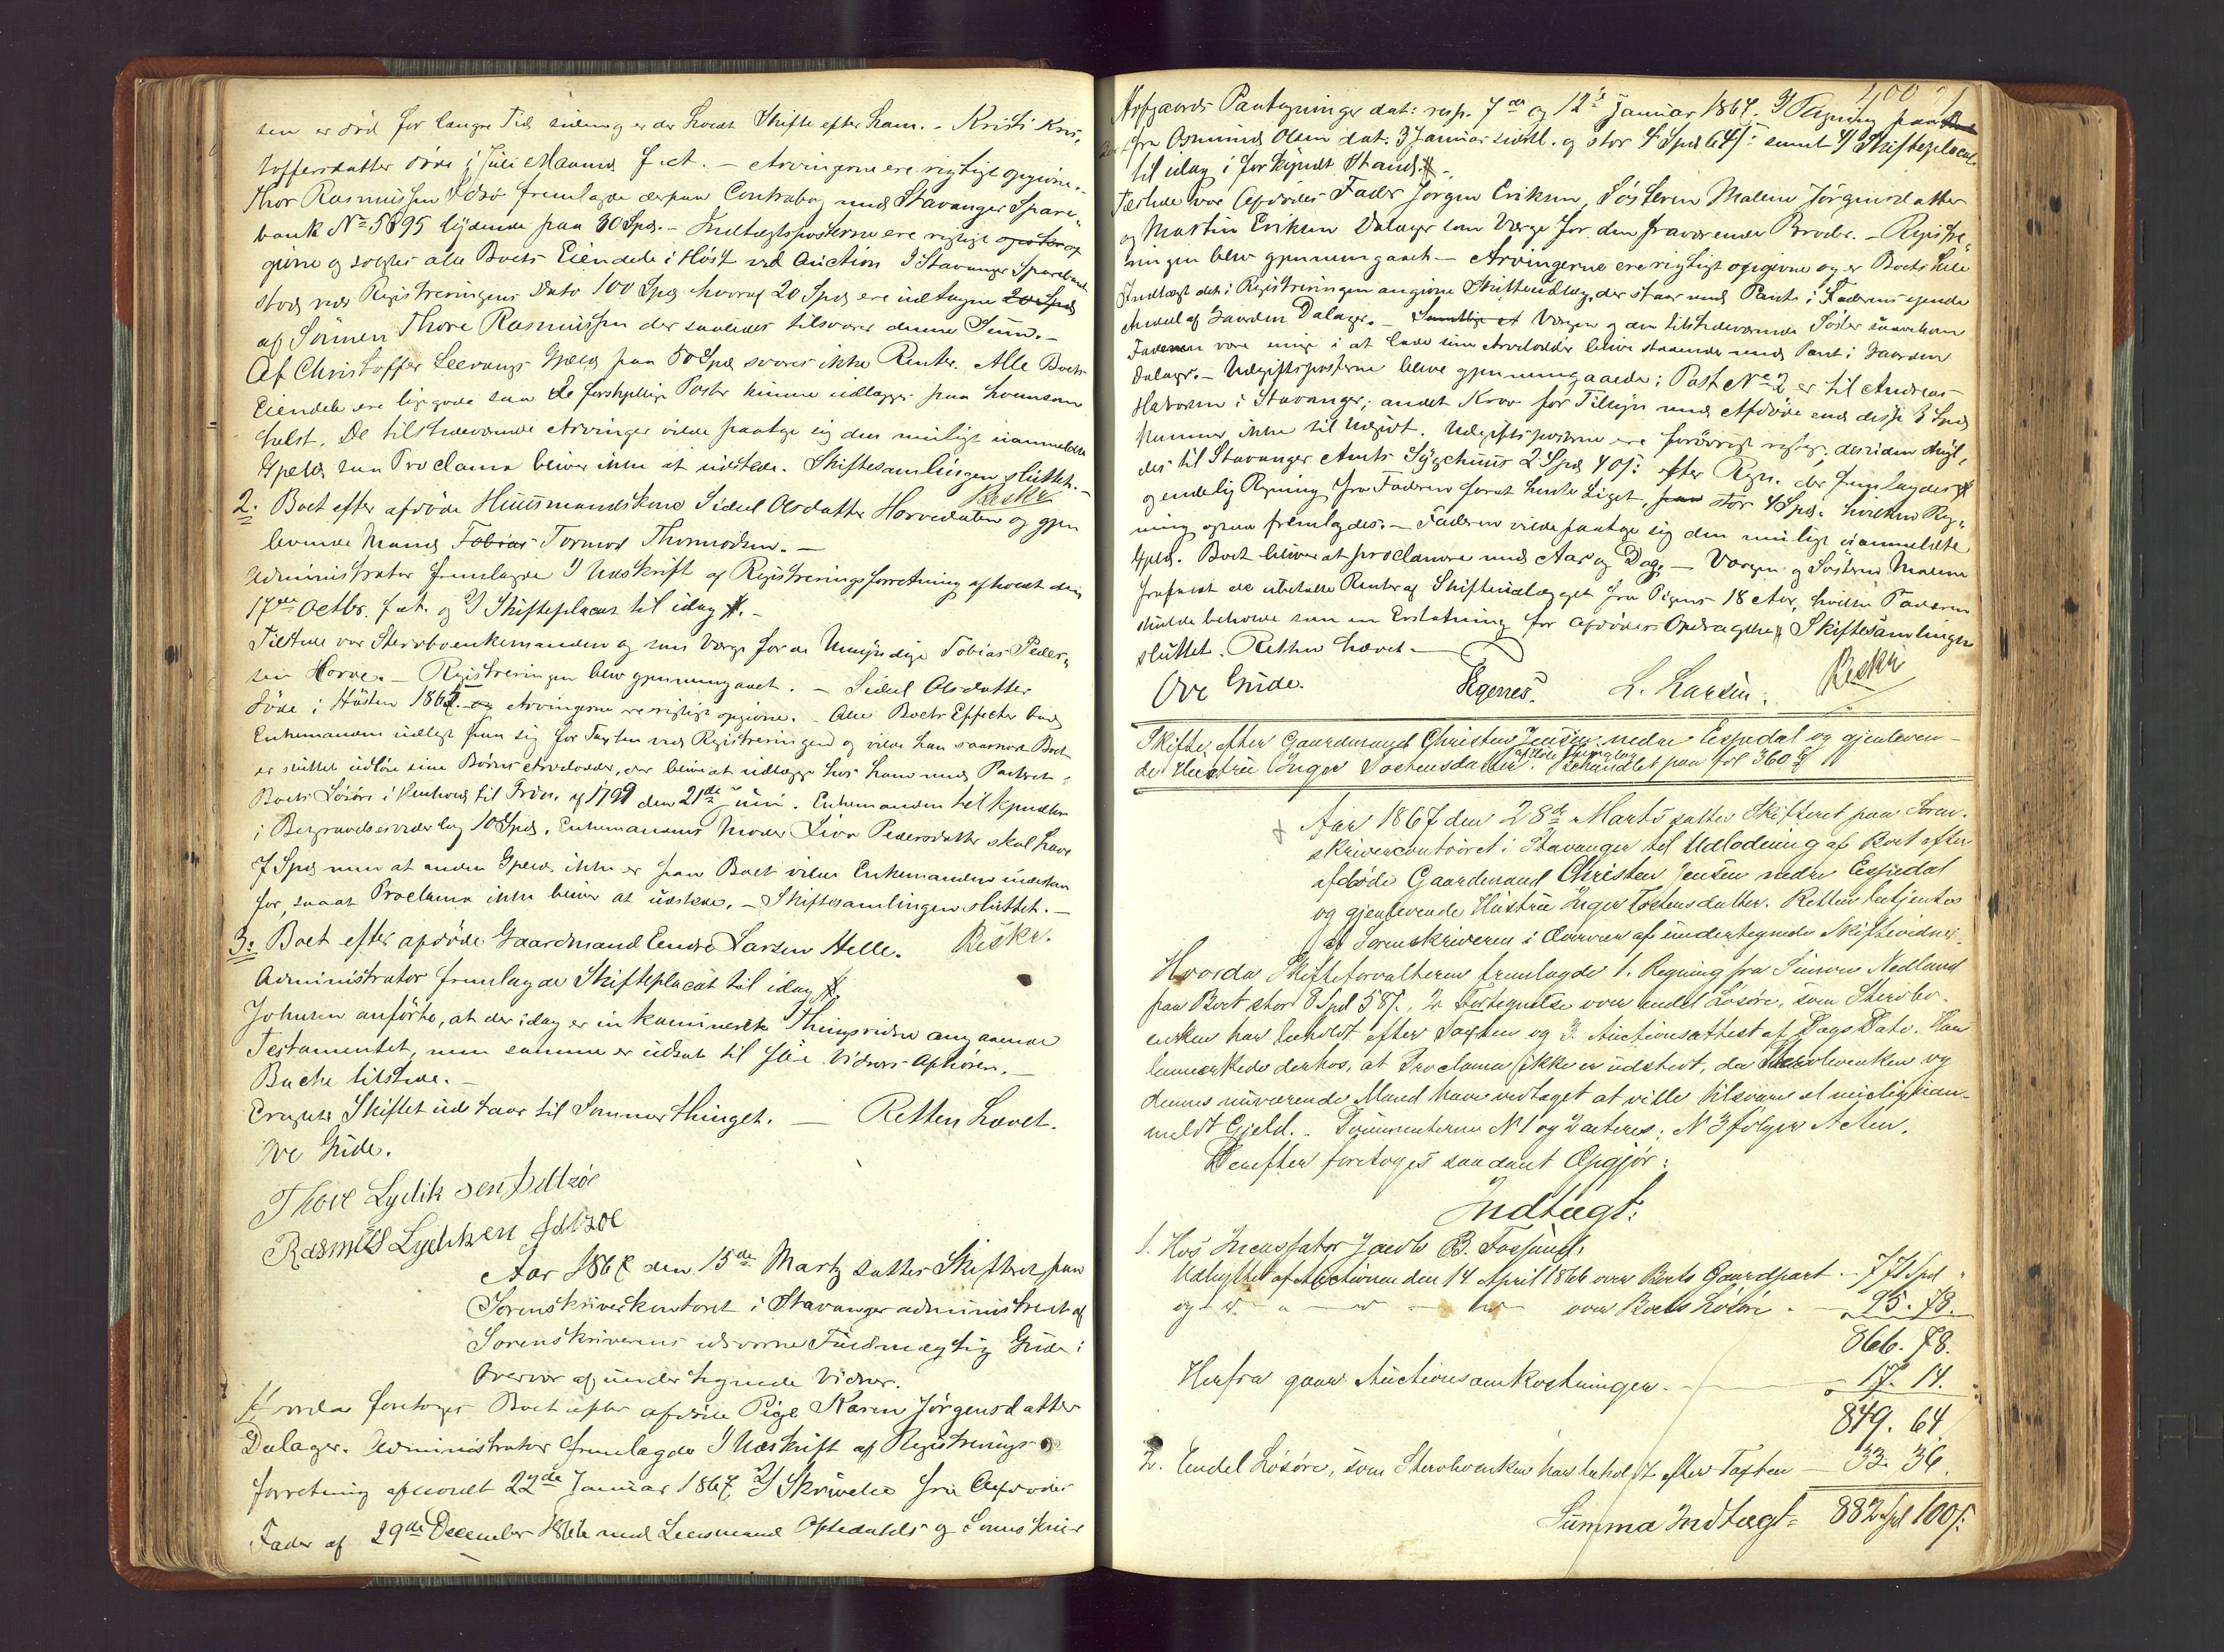 sen er død for længe Tid siden og er der holdt Skifte efter ham. - Kristi Kris-
toffersdatter døde i Juli Maaned f. A. - Arvingerne ere rigtigt opgivne. -
Thor Rasmussen Idsø fremlagde derpaa Contrabog med Stavanger Spare-
bank No 5895 lydende paa 80 Spd. - Indtægtsposterne ere rigtigt opgivne
givne og solgtes alle Boets Eiendele i Høst ved Auction. I Stavanger Sparebank
stod ved Registreringens Dato 100 Spd hvoraf 20 Spd ere udtagne 20 Spd
af Sønnen Thore Rasmussen der saaledes tilsvarer denne Sum. -
Af Christoffer Leevangs Gjæld paa 50 Spd svares ikke Renter. Alle Boets
Eiendele ere ligegode saa de forskjellige Poster kunne udlægges paa hvemsom
helst. De tilstedeværende Arvinger vilde paatage sig den muligt uanmeldte
Gjæld saa Proclama bliver ikke at udstede. Skiftesamlingen sluttet. -
Beskr.
2. Boet efter afdøde Huusmandskone Sidsel Olsdatter Horvedalen og gjen
levende Mand Tobias Tormod Thormodsen. -
Administrator fremlagde 1) Udskrift af Registreringsforretning afholdt den
17de Octbr. f. A. og 2) Skifteplacat til idag. -
Tilstede var Stervboenkemanden og som Værge for de Umyndige Tobias Peder-
sen Horve. - Registreringen blev gjennemgaaet. - Sidsel Olsdatter
døde i Høsten 1862. og Arvingerne ere rigtigt opgivne. - Alle Boets Effecter bad
Enkemanden udlagt paa sig for Taxten ved Registreringen og vilde han saasnart Boet
er sluttet udløse sine Børns Arvelodder, der bliver at udlægge hos ham med Panteret i
Boets Løsøre i Henhold til Frdn. af 1799 den 21de Juni. Enkemanden tilkjendtes
i Begravelsesvederlag 10 Spd. Enkemandens Moder Siva Pedersdatter skal have
7 Spd men at anden Gjæld ikke er paa Boet vilde Enkemanden indestaa
for, saaat Proclama ikke bliver at udstede. - Skiftesamlingen sluttet. -
Beskr.
3. Boet efter afdøde Gaardmand Endre Larsen Helle.
Administrator fremlagde Skifteplacat til idag.
Johnsen anførte, at der idag er in Thingsvidne angaaende
Testamentet, men samme er udsat til flere Vidners Afhøren. -
Buche tilstede. -
Eragtet: Skiftet udstaar til Sommerthinget. - Retten hævet.
Ove Gude.
Thore Lydiksen
Rasmus Lydiksen
Aar 1867 den 15de Marts sattes Skifteret paa
Sorenskriverkontoret i Stavanger administreret af
Sorenskriverens edsvorne Fuldmægtig Gude i
Overvær af undertegnede Vidner.
Hvorda foretoges Boet efter afdøde Pige Karen Jørgensdatter
Dalager. Administrator fremlagde 1) Udskrift af Registrerings-
forretning afholdt 22de Januar 1867 2) Skrivelse fra Afdødes
Fader af 29de December 1866 med Lensmand Oftedahls og Sorenskriver
400
Hofgaards Paategninger dat: resp. 7de og 12te Januar 1867. 3) Regning paa Boet
fra Osmund Olsen dat: 3 Januar sidstl. og stor 4 Spd 64 s: samt 4) Skifteplacat
til idag i forkyndt Stand. -
Tilstede var Afdødes Fader Jørgen Eriksen, Søsteren Malene Jørgensdatter
og Martin Eriksen Dalager som Værge for den fraværende Broder. - Registre-
ringen blev gjennemgaaet - Arvingerne ere rigtigt opgivne og er Boets hele
Indtægt det i Registreringen angivne Skifteudlæg, der staar med Pant i Faderens eiende
Andeel af Gaarden Dalager. - Samtlige at Værgen og den tilstedeværende Søster saavelsom
Faderen vare enige i at lade sine Arvelodder blive staaende med Pant i Gaarden
Dalager. - Udgiftsposterne bleve gjennemgaaede; Post No 2 er til Andreas
i Stavanger; andet Krav for Tilsyn med Afdøde end disse 3 Spd
kommer ikke til Udgivt. Udgiftsposterne ere forøvrigt rigtige; desuden skyl-
des til Stavanger Amts Sygehuus 2 Spd 40 s: efter Regn. der fremlagdes
og endelig Regning fra Faderen for at hente Liget, paa stor 4 Spd. hvilken Reg-
ning ogsaa fremlagdes. - Faderen vilde paatage sig den mulige uanmeldte
Gjæld. Boet bliver at proclamere med Aar og Dag. - Værgen og Søsteren Malene
frafaldt de ubetalte Renter af Skifteudlægget fra Pigens 18 Aar, hvilke Faderen
skulde beholde som en Erstatning for Afdødes Opdragelse. Skiftesamlingen
sluttet. Retten hævet -
Ove Gude. Egenes. L. Larsen. Beskr
Skifte efter Gaardmand Christen Jensen nedre Espedal og gjenleven-
de Hustrue Inger Tostensdatter. Behandlet paa fol 360
Aar 1867 den 28de Marts sattes Skifteret paa Soren-
skrivercontoiret i Stavanger til Udlodning af Boet efter
afdøde Gaardmand Christen Jensen nedre Espedal
og gjenlevende Hustrue Inger Tostensdatter. Retten betjentes
af Sorenskriveren i Overvær af undertegnede Skiftevidner.
Hvorda Skifteforvalteren fremlagde 1. Regning fra Simon Nedland
paa Boet stor 8 Spd 58 s., 2. Fortegnelse over endel Løsøre, som Stervbo-
enken har beholdt efter Taxten og 3. Auctionsattest af Dags Dato. Han
bemærkede derhos, at Proclama ikke er udstedt, da Stervboenken og
dennes nuværende Mand have vedtaget at ville tilsvare al muelig uan-
meldt Gjeld. - Documenterne N 1 og 2 acteres; N 3 følger Acten.
Derefter foretoges saadant Opgjør:
Indtægt:
1. Hos Incassator Jacob B. Fossand,
Udbyttet af Auctionen den 14 April 1866 over Boets Gaardpart - 771 Spd "
og - d - " - do - do - over Boets Løsøre - 95. 78.
866. 78.
Herfra gaar Auctionsomkostninger - 17. 14.
849. 64.
2. Endel Løsøre, som Stervboenken har beholdt efter Taxten - 33. 36.
Summa Indtægt = 882 Spd 100 s: